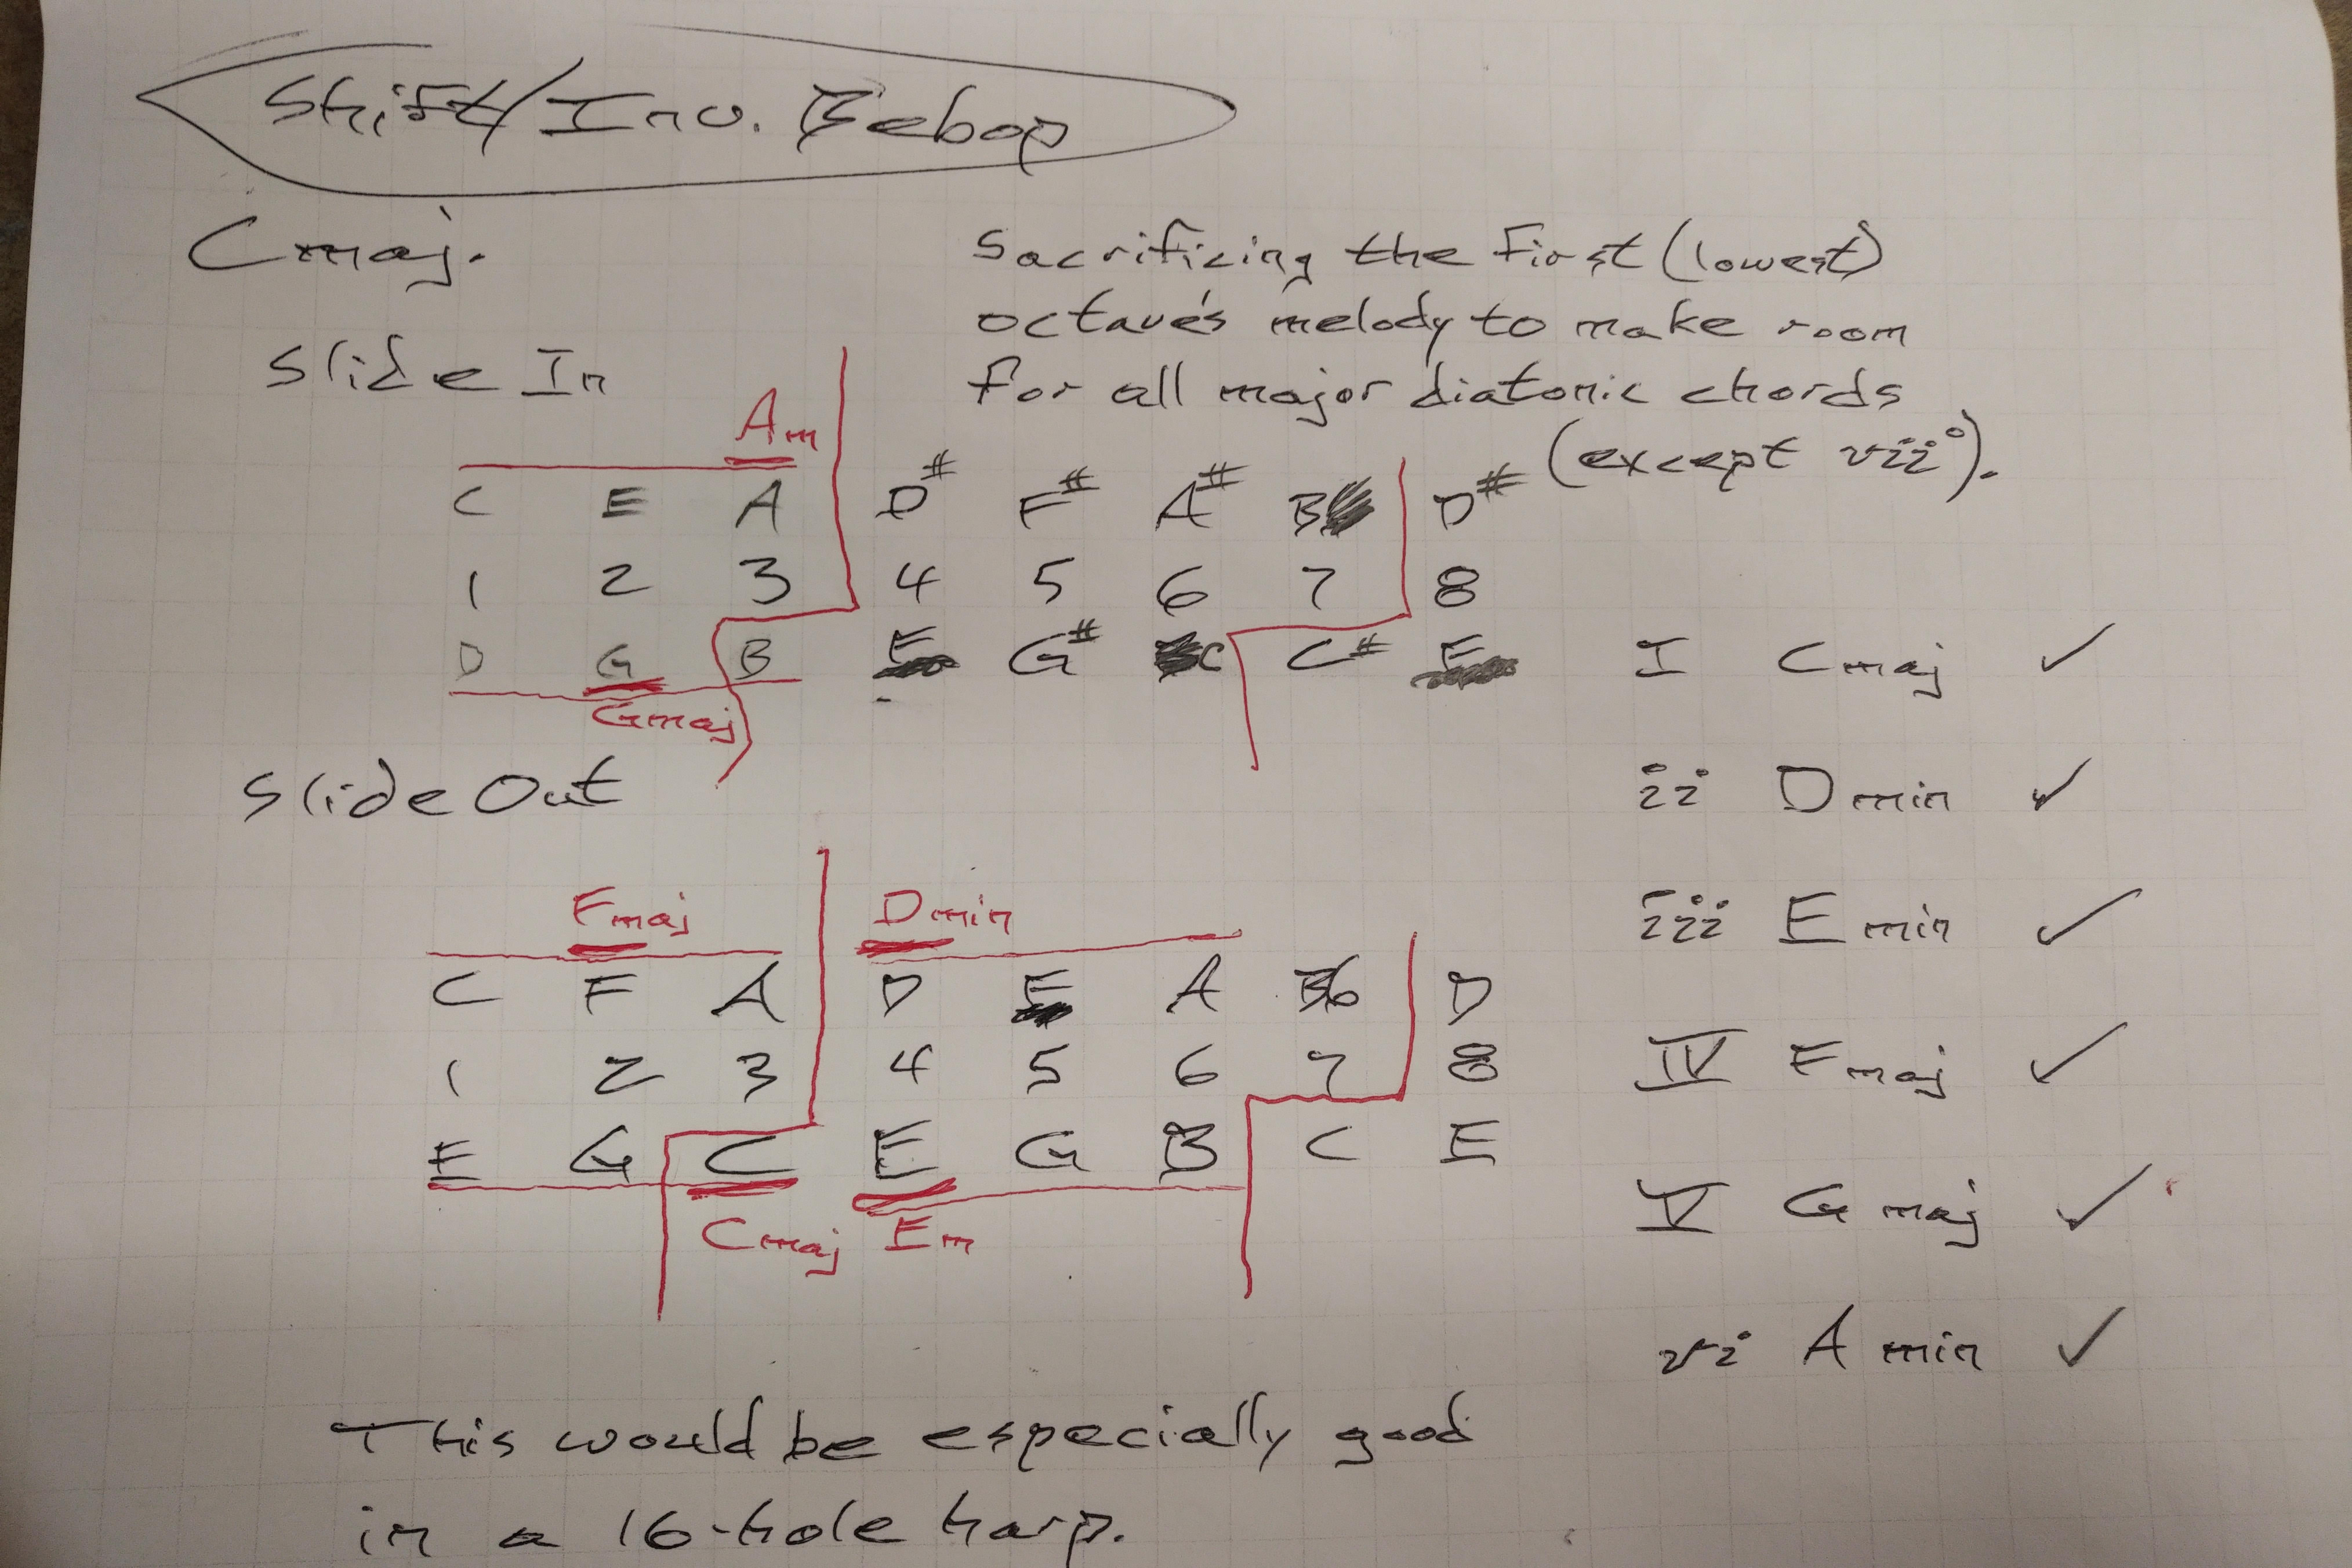 Shift/Inv. Bebop
Cmaj.
Sacrificing the first (lowest)
octave's melody to make room
for all major diatonic chords
(except vii°).
Slide In
Am
C E A D# F# A# B D#
1 2 3 4 5 6 7 8
D G B E G# C C# E
Gmaj
Slide Out
Fmaj Dmin
C F A D A Bb D
1 2 3 4 5 6 7 8
E G C E G B C E
Cmaj Em
I Cmaj ✓
ii Dmin ✓
iii Emin ✓
IV Fmaj ✓
V Gmaj ✓
vi Amin ✓
This would be especially good
in a 16-hole harp.